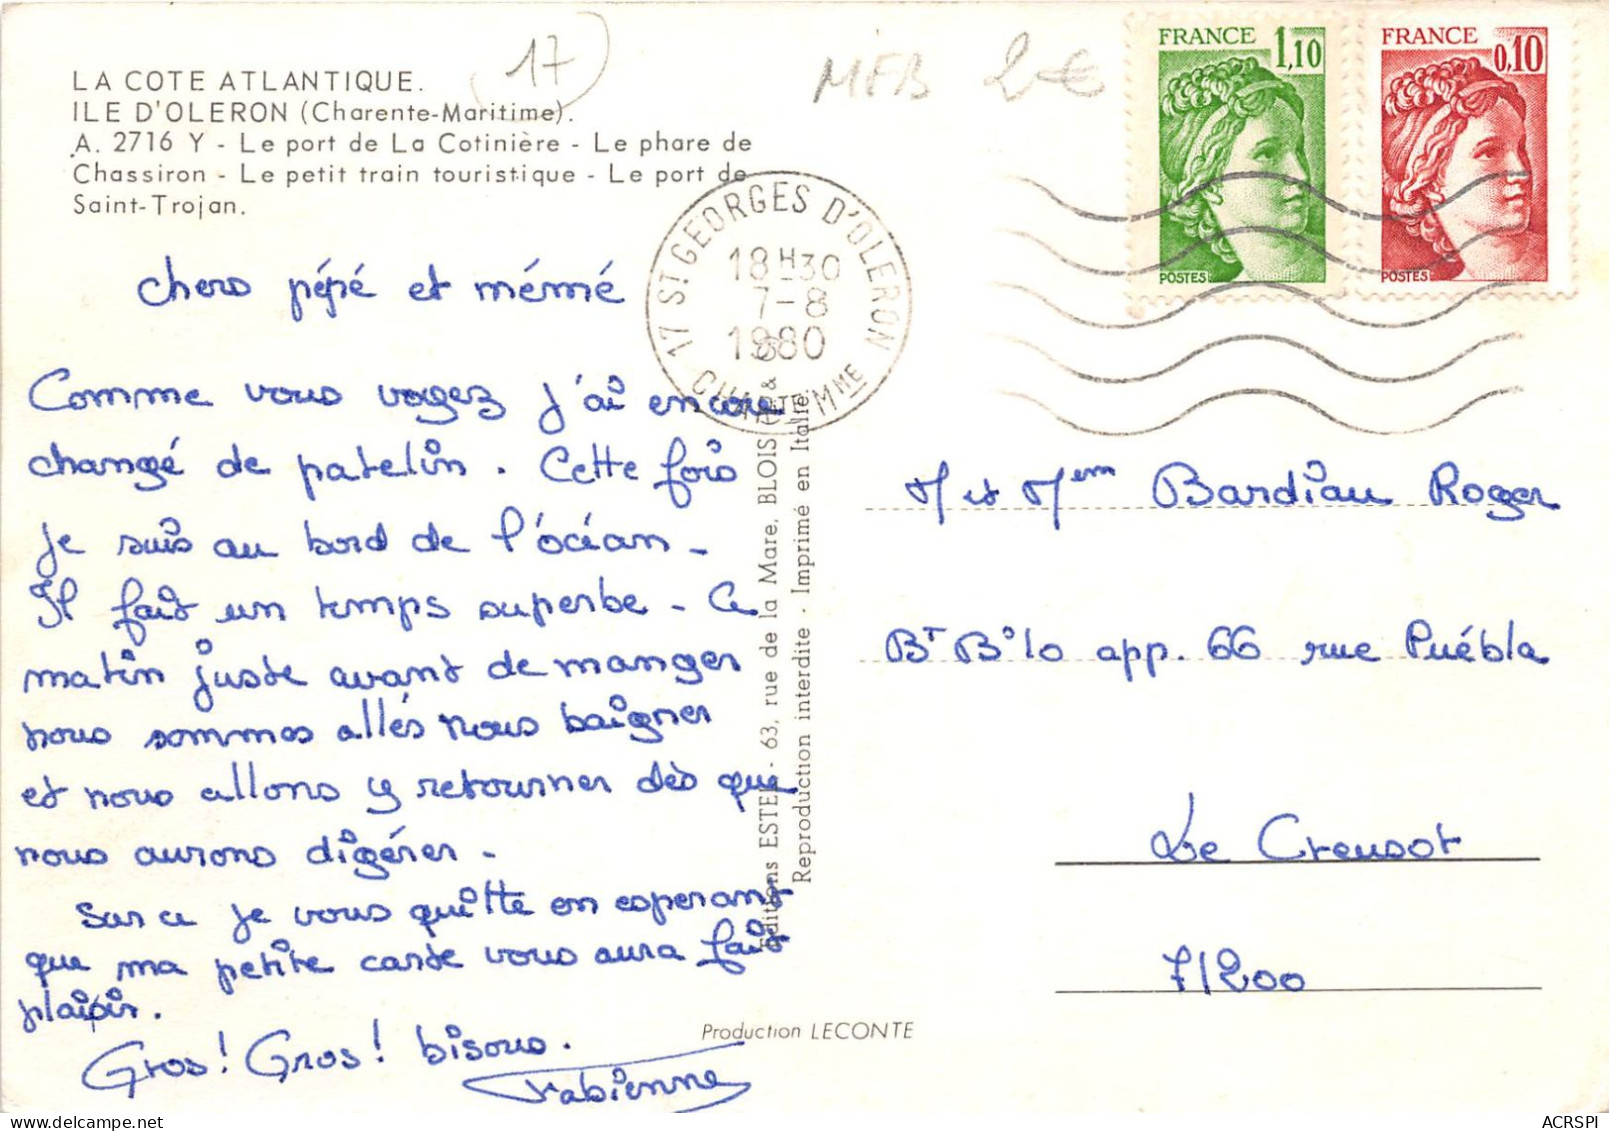 LA COTE ATLANTIQUE.
ILE D'OLERON (Charente-Maritime).
A. 2716 Y - Le port de La Cotinière - Le phare de
Chassiron - Le petit train touristique - Le port de
Saint-Trojan.
17
MFB 2€
FRANCE 1,10
POSTES
FRANCE 0,10
POSTES
17 ST GEORGES D'OLERON
18H30
7-8
1980
CHARENTE MME
chers pépé et mémé
Comme vous voyez j'ai encore
changé de patelin. Cette fois
je suis au bord de l'océan -
Il fait un temps superbe - Ce
matin juste avant de manger
nous sommes allés nous baigner
et nous allons y retourner dès que
nous aurons digérer -
Sur ce je vous quitte en esperant
que ma petite carte vous aura fait
plaisir.
Gros! Gros! bisous.
Fabienne
Editions ESTEL - 63, rue de la Mare, BLOIS &
Reproduction interdite - Imprimé en Italie
Production LECONTE
M et Mem Bardiau Roger
BT B10 app. 66 rue Puébla
Le Creusot
71200
ACRSPI